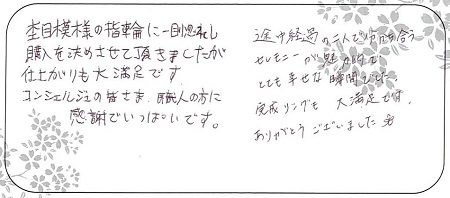 杢目模様の指輪に一目惚れし
購入を決めさせて頂きましたが
仕上がりも大満足です。
コンシェルジュの皆さま、職人の方に
感謝でいっぱいです。
途中経過の二人で分かち合う
セレモニーが魅力的で、
とても幸せな瞬間でした。
完成リングも 大満足です。
ありがとうございました